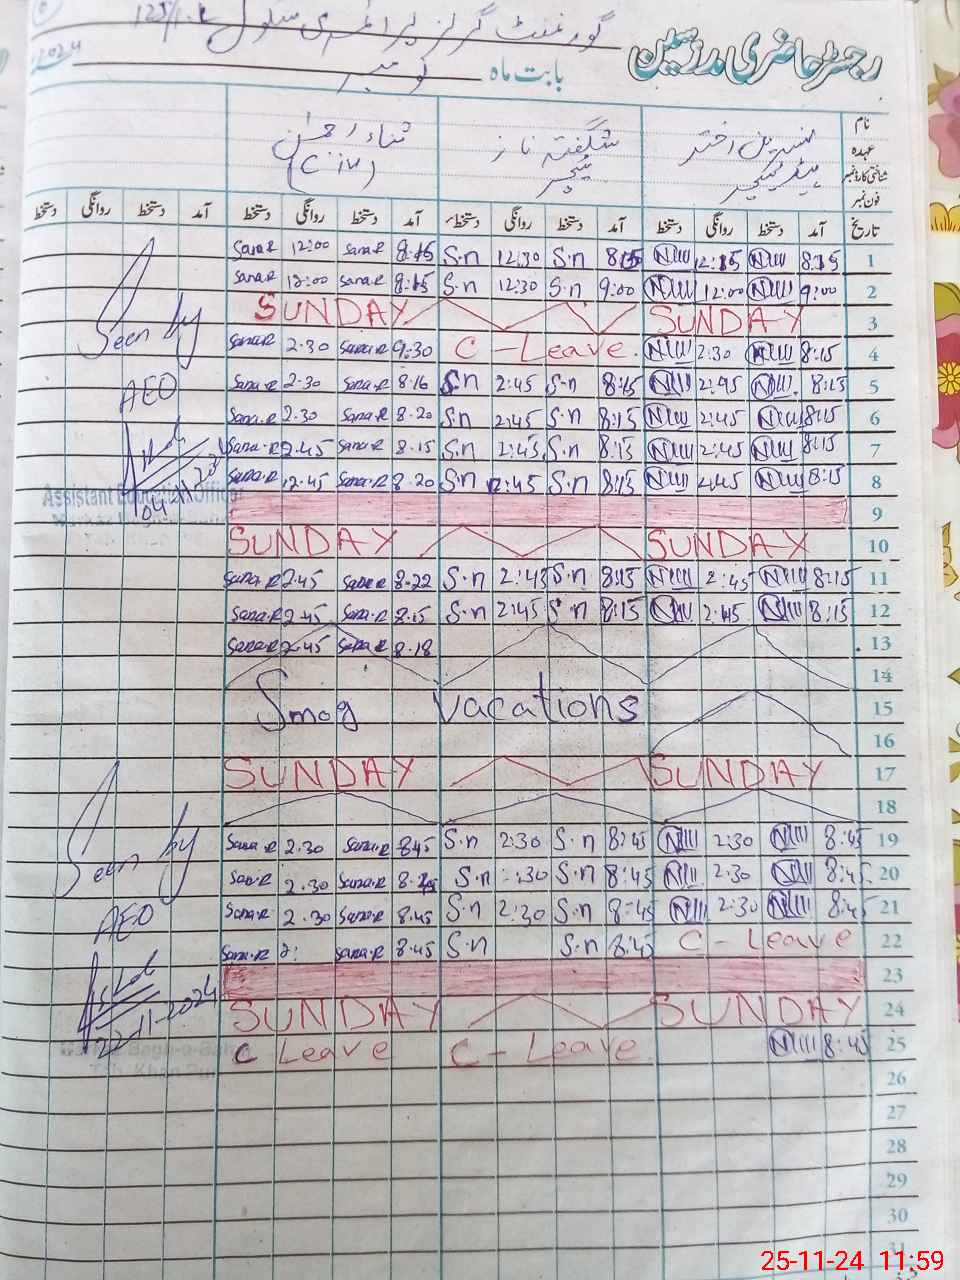 رجسٹر حاضری مدرسین
گورنمنٹ گرلز پرائمری سکول
بابت ماہ نومبر 2024
نام نسرین اختر شگفتہ ناز ثناء رحمٰن
عہدہ
شناختی کارڈ نمبر ہیڈ ٹیچر ٹیچر
فون نمبر
تاریخ آمد دستخط روانگی دستخط آمد دستخط روانگی دستخط آمد دستخط روانگی دستخط آمد دستخط روانگی دستخط
Sana.R 12:00 Sana.R 8:15 S.n 12:30 S.n 8:15 12:15 8:15 1
Sana.R 12:00 Sana.R 8:15 S.n 12:30 S.n 9:00 12:00 9:00 2
SUNDAY SUNDAY 3
Sana.R 2.30 Sana.R 9:30 C - Leave. 2:30 8:15 4
Sana.R 2.30 Sana.R 8.16 S.n 2:45 S.n 8:15 2:45 8:15 5
Sana.R 2.30 Sana.R 8.20 S.n 2:45 S.n 8:15 2:45 8:15 6
Sana.R 2.45 Sana.R 8.15 S.n 2:45 S.n 8:15 2:45 8:15 7
Sana.R 2.45 Sana.R 8.20 S.n 2:45 S.n 8:15 2:45 8:15 8
Seen by
AEO
Assistant Education Officer
9
SUNDAY SUNDAY 10
Sana.R 2.45 Sana.R 8.22 S.n 2:45 S.n 8:15 2:45 8:15 11
Sana.R 2.45 Sana.R 8.15 S.n 2:45 S.n 8:15 2:45 8:15 12
Sana.R 2.45 Sana.R 8.18 13
14
Smog Vacations 15
16
SUNDAY SUNDAY 17
18
Sana.R 2.30 Sana.R 8.45 S.n 2:30 S.n 8:45 2:30 8:45 19
Sana.R 2.30 Sana.R 8.45 S.n :30 S.n 8:45 2:30 8:45 20
Sana.R 2.30 Sana.R 8.45 S.n 2:30 S.n 8:45 2:30 8:45 21
Sana.R 2: Sana.R 8.45 S.n S.n 8:45 C - Leave 22
Seen by
AEO
22-11-2024
23
SUNDAY SUNDAY 24
C Leave C - Leave. 8:45 25
26
27
28
29
30
31
25-11-24 11:59